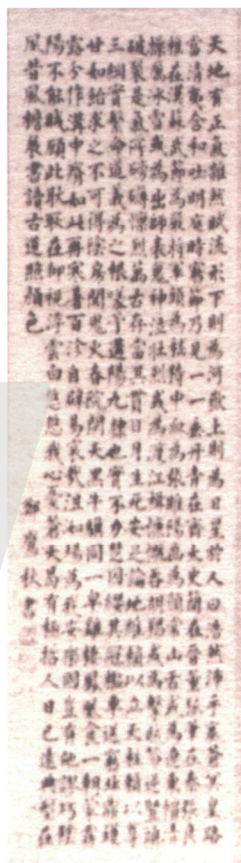 天地有正氣雜然賦流形下則為河嶽上則為日星於人曰浩然沛乎塞蒼冥皇路
當清夷含和吐明庭時窮節乃見一一垂丹青在齊太史簡在晉董狐筆在秦張良
椎在漢蘇武節為嚴將軍頭為嵇侍中血為張睢陽齒為顏常山舌或為遼東帽清
操厲冰雪或為出師表鬼神泣壯烈或為渡江楫慷慨吞胡羯或為擊賊笏逆豎頭
破裂是氣所磅礴凜烈萬古存當其貫日月生死安足論地維賴以立天柱賴以尊
三綱實繫命道義為之根嗟予遘陽九隸也實不力楚囚纓其冠車送窮北鼎鑊
甘如飴求之不可得陰房闃鬼火春院閟天黑牛驥同一皁雞棲鳳凰食一朝蒙霧
露分作溝中瘠如此再寒暑百沴自辟易哀哉沮洳場為我安樂國豈有他繆巧陰
陽不能賊顧此耿耿在仰視浮雲白悠悠我心憂蒼天曷有極哲人日已遠典型在
風昔風檐展書讀古道照顏色 鄭秋書